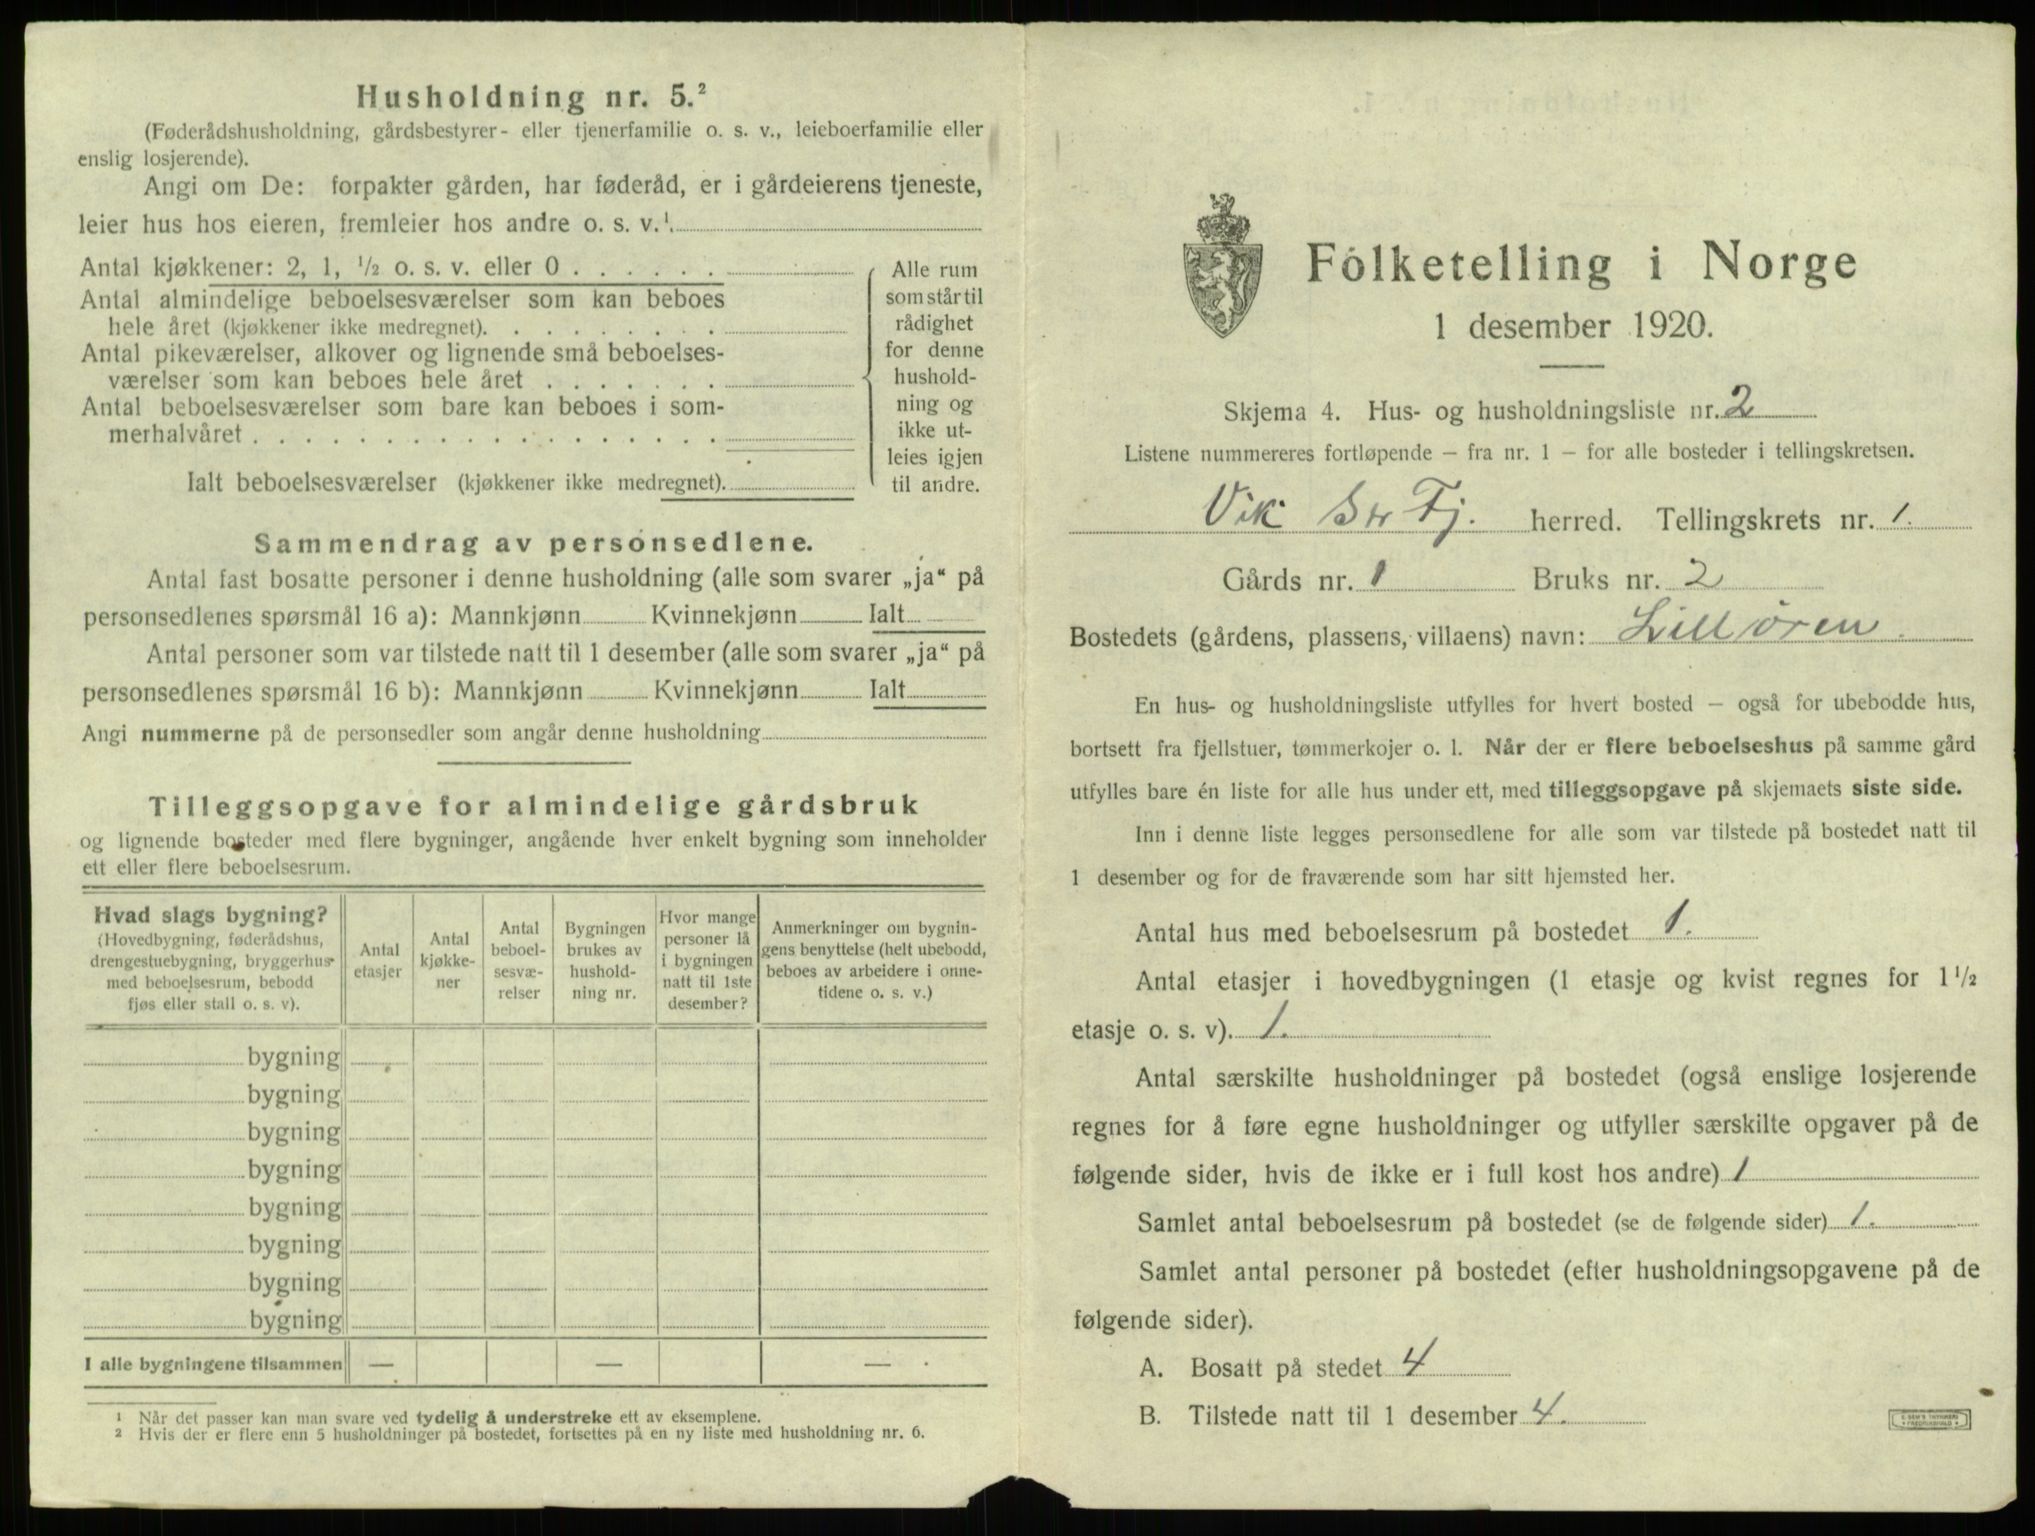 Husholdning nr. 5.²
(Føderådshusholdning, gårdsbestyrer- eller tjenerfamilie o. s. v., leieboerfamilie eller
enslig losjerende).
Angi om De: forpakter gården, har føderåd, er i gårdeierens tjeneste,
leier hus hos eieren, fremleier hos andre o. s. v.¹.
Antal kjøkkener: 2, 1, ½ o. s. v. eller 0 . . . . . .
Antal almindelige beboelsesværelser som kan beboes
hele året (kjøkkener ikke medregnet). . . . . . . . .
Antal pikeværelser, alkover og lignende små beboelses-
værelser som kan beboes hele året . . . . . . .
Antal beboelsesværelser som bare kan beboes i som-
merhalvåret . . . . . . . . . . . . . . . . . .
Ialt beboelsesværelser (kjøkkener ikke medregnet).
Alle rum
som står til
rådighet
for denne
hushold-
ning og
ikke ut-
leies igjen
til andre.
Sammendrag av personsedlene.
Antal fast bosatte personer i denne husholdning (alle som svarer „ja“ på
personsedlenes spørsmål 16 a): Mannkjønn Kvinnekjønn Ialt
Antal personer som var tilstede natt til 1 desember (alle som svarer „ja“ på
personsedlenes spørsmål 16 b): Mannkjønn Kvinnekjønn Ialt
Angi nummerne på de personsedler som angår denne husholdning
Tilleggsopgave for almindelige gårdsbruk
og lignende bosteder med flere bygninger, angående hver enkelt bygning som inneholder
ett eller flere beboelsesrum.
Hvad slags bygning?
(Hovedbygning, føderådshus,
drengestuebygning, bryggerhus
med beboelsesrum, bebodd
fjøs eller stall o. s. v).
Antal
etasjer
Antal
kjøkke-
ner
Antal
beboel-
sesvæ-
relser
Bygningen
brukes av
hushold-
ning nr.
Hvor mange
personer lå
i bygningen
natt til 1ste
desember?
Anmerkninger om bygnin-
gens benyttelse (helt ubebodd,
beboes av arbeidere i onne-
tidene o. s. v.)
bygning
bygning
bygning
bygning
bygning
bygning
bygning
bygning
I alle bygningene tilsammen — — —
¹ Når det passer kan man svare ved tydelig å understreke ett av eksemplene.
² Hvis der er flere enn 5 husholdninger på bostedet, fortsettes på en ny liste med husholdning nr. 6.
Folketelling i Norge
1 desember 1920.
Skjema 4. Hus- og husholdningsliste nr. 2
Listene nummereres fortløpende — fra nr. 1 — for alle bosteder i tellingskretsen.
Vik Str Fj. herred. Tellingskrets nr. 1.
Gårds nr. 1 Bruks nr. 2
Bostedets (gårdens, plassens, villaens) navn: Lilløren.
En hus- og husholdningsliste utfylles for hvert bosted — også for ubebodde hus,
bortsett fra fjellstuer, tømmerkojer o. l. Når der er flere beboelseshus på samme gård
utfylles bare én liste for alle hus under ett, med tilleggsopgave på skjemaets siste side.
Inn i denne liste legges personsedlene for alle som var tilstede på bostedet natt til
1 desember og for de fraværende som har sitt hjemsted her.
Antal hus med beboelsesrum på bostedet 1.
Antal etasjer i hovedbygningen (1 etasje og kvist regnes for 1 ½
etasje o. s. v). 1.
Antal særskilte husholdninger på bostedet (også enslige losjerende
regnes for å føre egne husholdninger og utfyller særskilte opgaver på de
følgende sider, hvis de ikke er i full kost hos andre) 1
Samlet antal beboelsesrum på bostedet (se de følgende sider) 1.
Samlet antal personer på bostedet (efter husholdningsopgavene på de
følgende sider).
A. Bosatt på stedet 4
B. Tilstede natt til 1 desember 4.